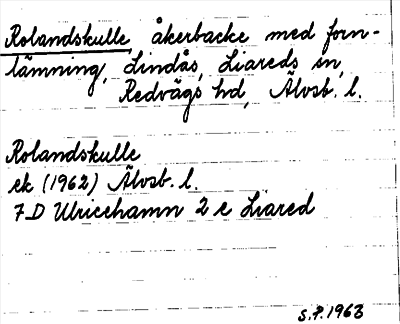 Rolandskulle, åkerbacke med forn-
lämning, Lindås, Liareds sn,
Redvägs hd, Älvsb. l.
Rolandskulle
ek (1962) Älvsb. l.
7 D Ulricehamn 2 e Liared
S.P. 1963